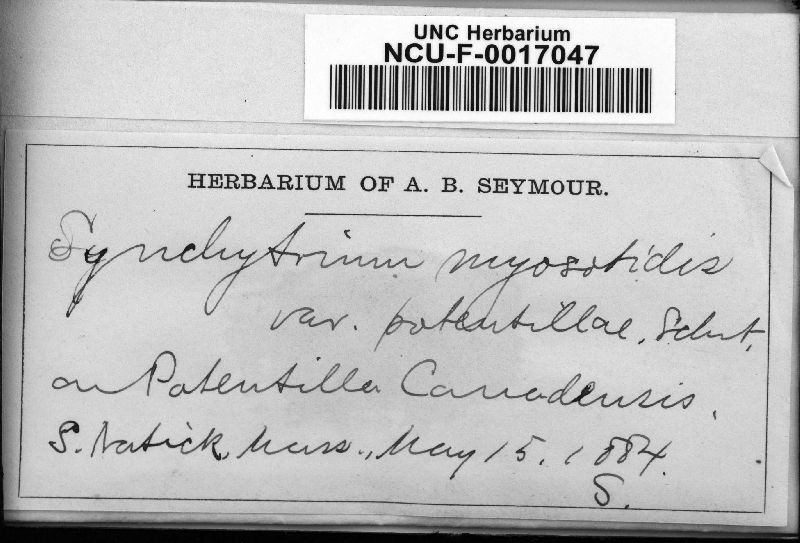 UNC Herbarium
NCU-F-0017047
HERBARIUM OF A. B. SEYMOUR.
Synchytrium myosotidis
var. potentillae, Schrt,
on Potentilla Canadensis.
S. Natick, Mass., May 15. 1884.
S.